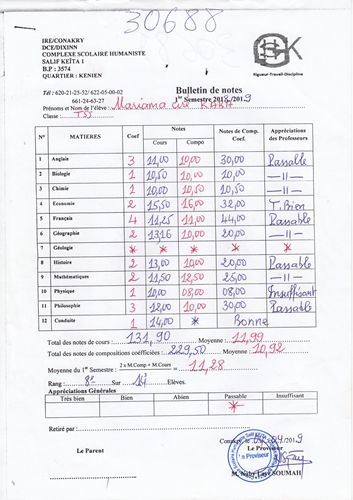 30688
IRE/CONAKRY
DCE/DIXINN
COMPLEXE SCOLAIRE HUMANISTE
SALIF KEÏTA 1
B.P : 3574
QUARTIER : KENIEN
Rigueur-Travail-Discipline
Tél : 620-21-25-52/ 622-05-00-02
661-24-63-27
Bulletin de notes
1er Semestre 2018/2019
Prénoms et Nom de l'élève : Mariama Ciré KABA
Classe : TSS
N° MATIERES Coef Notes Notes de Comp. Coef. Appréciations des Professeurs
Cours Compo
1 Anglais 3 11,00 10,00 30,00 Passable
2 Biologie 1 10,50 10,00 10,00 —॥—
3 Chimie 1 10,00 10,50 10,50 —॥—
4 Economie 2 15,50 16,00 32,00 T. Bien
5 Français 4 11,25 11,00 44,00 Passable
6 Géographie 2 13,16 10,00 20,00 —॥—
7 Géologie * * * * *
8 Histoire 2 13,00 10,00 20,00 Passable
9 Mathématiques 2 11,50 12,50 25,00 —॥—
10 Physique 1 10,00 08,00 08,00 Insuffisant
11 Philosophie 3 12,00 10,00 30,00 Passable
12 Conduite 1 14,00 * Bonne
Total des notes de cours : 131,90 Moyenne : 11,99
Total des notes de compositions coefficiées : 229,50 Moyenne : 10,92
Moyenne du 1er Semestre : 2 x M.Comp + M.Cours = 11,28
Rang : 8e Sur 14 Elèves.
Appréciations Générales
Très bien Bien A.Bien Passable Insuffisant
*
Retiré par :
Conakry
Le Parent
Le Proviseur
M. Naby Laye SOUMAH